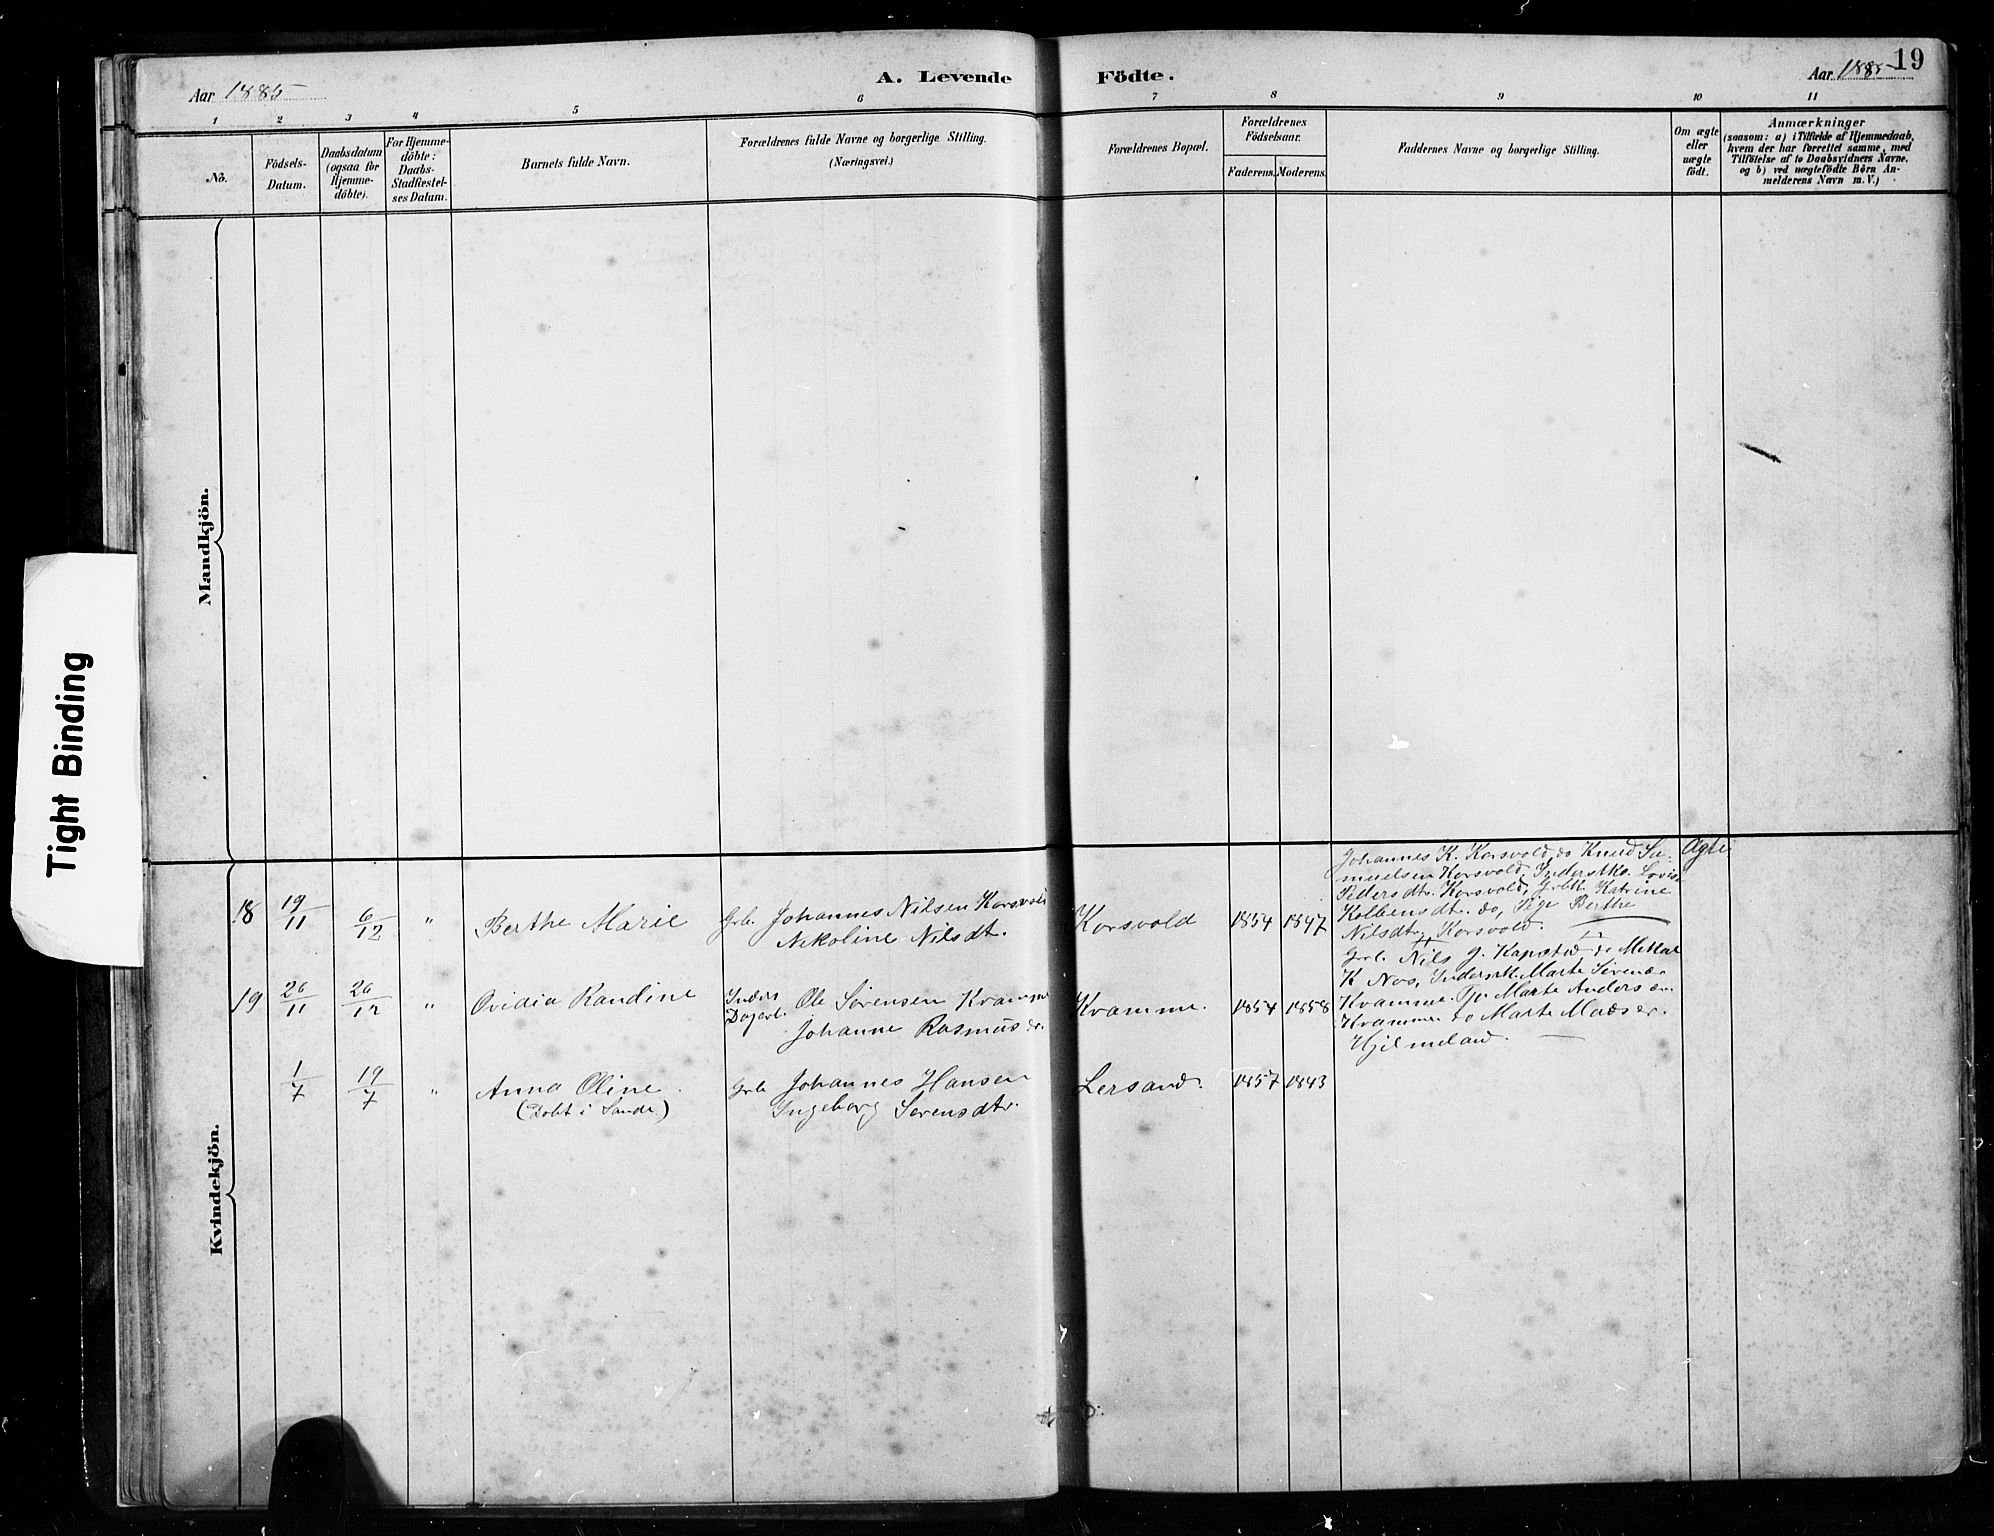 19
Aar 1885
A. Levende Födte.
Aar 1885
1 2 3 4 5 6 7 8 9 10 11
No.
Födsels-
Datum.
Daabsdatum
(ogsaa for
Hjemme-
döbte).
For Hjemme-
döbte:
Daabs-
Stadfæstel-
ses Datum.
Barnets fulde Navn.
Forældrenes fulde Navne og borgerlige Stilling.
(Næringsvei.)
Forældrenes Bopæl.
Forældrenes
Födselsaar.
Faderens. Moderens.
Faddernes Navne og borgerlige Stilling.
Om ægte
eller
uægte
födt.
Anmærkninger
(saasom: a) i Tilfælde af Hjemmedaab,
hvem der har forrettet samme, med
Tilföielse af to Daabsvidners Navne.
og b) ved uægtefödte Börn An-
melderens Navn m. V.)
Mandkjön.
Tight Binding
Kvindekjön.
18 19/11 6/12 " Berthe Marie Grb. Johannes Nilsen Korsvold
Nikoline Nilsdt.
Korsvold 1854 1847
Johannes K. Korsvold, do Knud Sa-
muelsen Korsvold, Inderstko. Lovise
Pedersdtr. Korsvold, Grbk. Katrine
Kolbensdt. do, Pige Berthe
Nilsdtr. Korsvold.
Ægte
19 26/11 26/12 " Ovidia Randine Inders
Dagarb. Ole Sörensen Kramme
Johanne Rasmusdr.
Kvamme. 1854 1858
Grb. Nils J. Kapstad do Mikkal
K Nos, Marte
Kvamme. Marte Anders
Kvamme do Marte Madser.
Hjelmeland.
1/7 19/7 " Anna Oline.
(Döbt i Sande)
Grb Johannes Hansen
Ingeborg Sörensdtr.
Lersand. 1857 1843